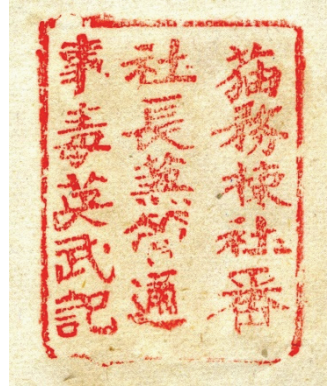 猫務捒社番
社長兼管通
事毒英武記